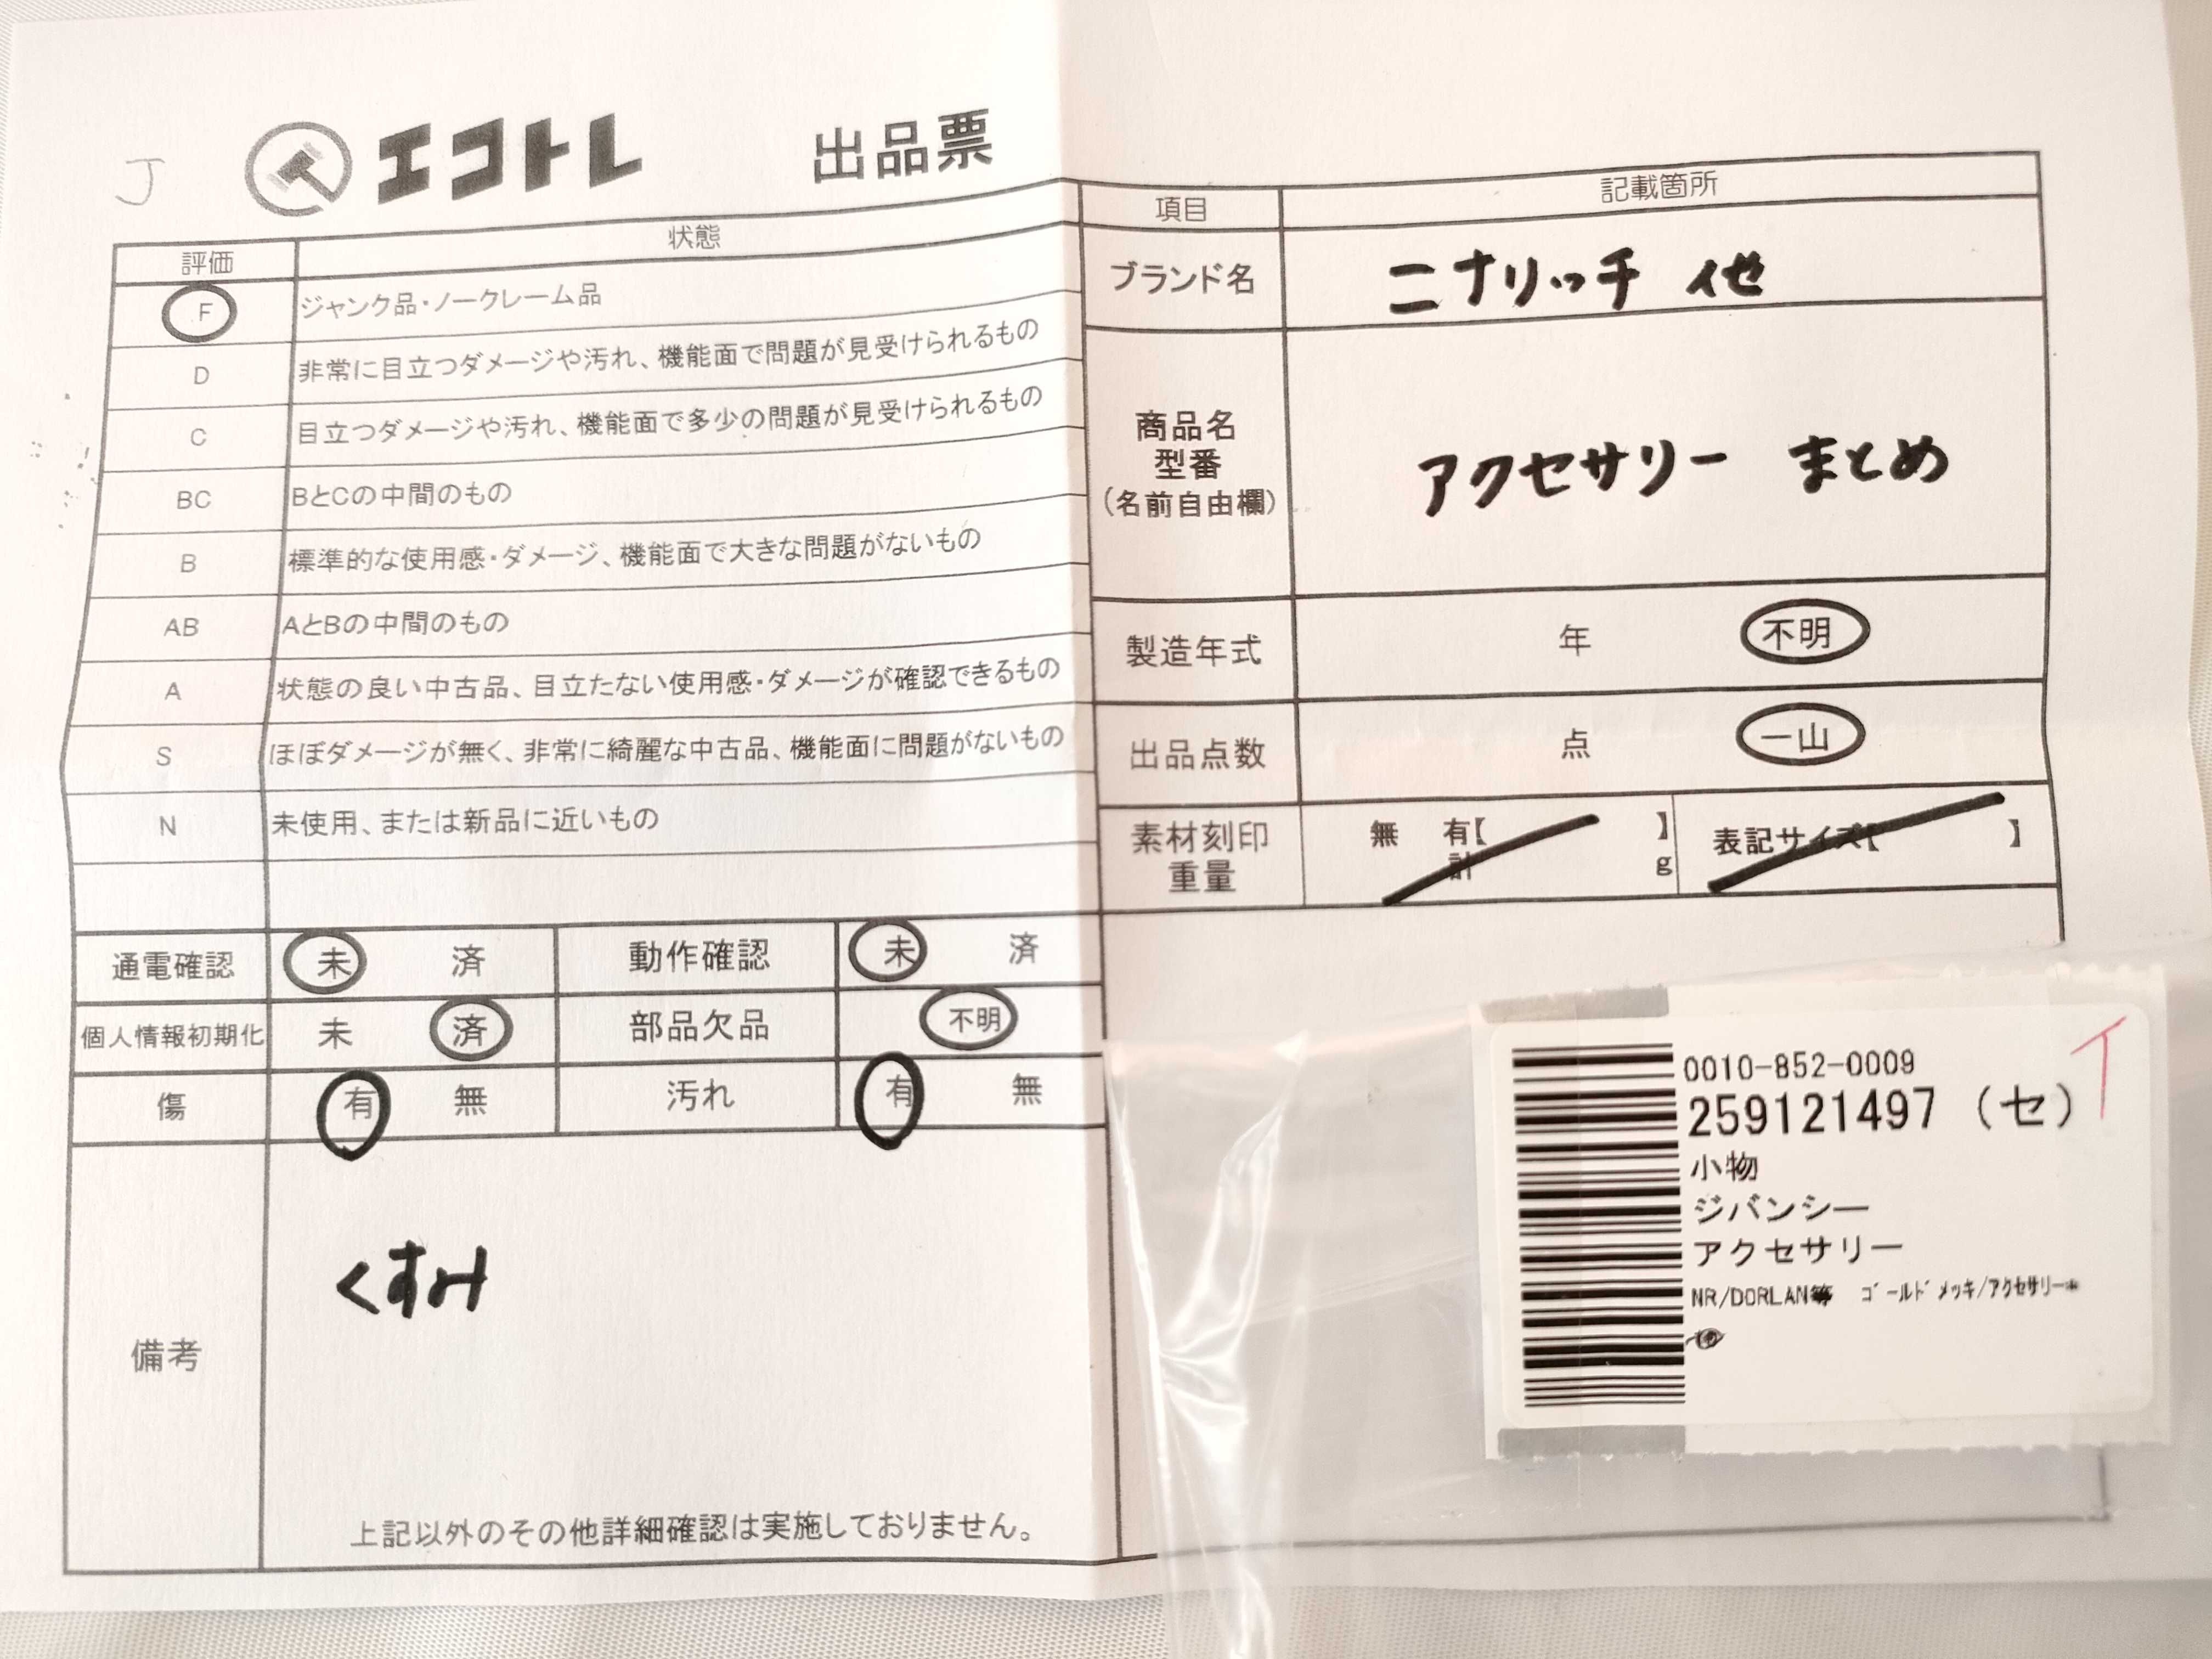 J
エコトレ 出品票
評価 状態
F ジャンク品・ノークレーム品
D 非常に目立つダメージや汚れ、機能面で問題が見受けられるもの
C 目立つダメージや汚れ、機能面で多少の問題が見受けられるもの
BC BとCの中間のもの
B 標準的な使用感・ダメージ、機能面で大きな問題がないもの
AB AとBの中間のもの
A 状態の良い中古品、目立たない使用感・ダメージが確認できるもの
S ほぼダメージが無く、非常に綺麗な中古品、機能面に問題がないもの
N 未使用、または新品に近いもの
通電確認 未 済 動作確認 未 済
個人情報初期化 未 済 部品欠品 不明
傷 有 無 汚れ 有 無
備考
くすみ
上記以外のその他詳細確認は実施しておりません。
項目 記載箇所
ブランド名 ニナリッチ 他
商品名
型番
(名前自由欄)
アクセサリー まとめ
製造年式 年 不明
出品点数 点 一山
素材刻印 無 有【 】 表記サイズ【 】
重量 計 g
0010-852-0009
259121497 (セ)
イ
小物
ジバンシー
アクセサリー
NR/DORLAN等 ゴールドメッキ/アクセサリー*